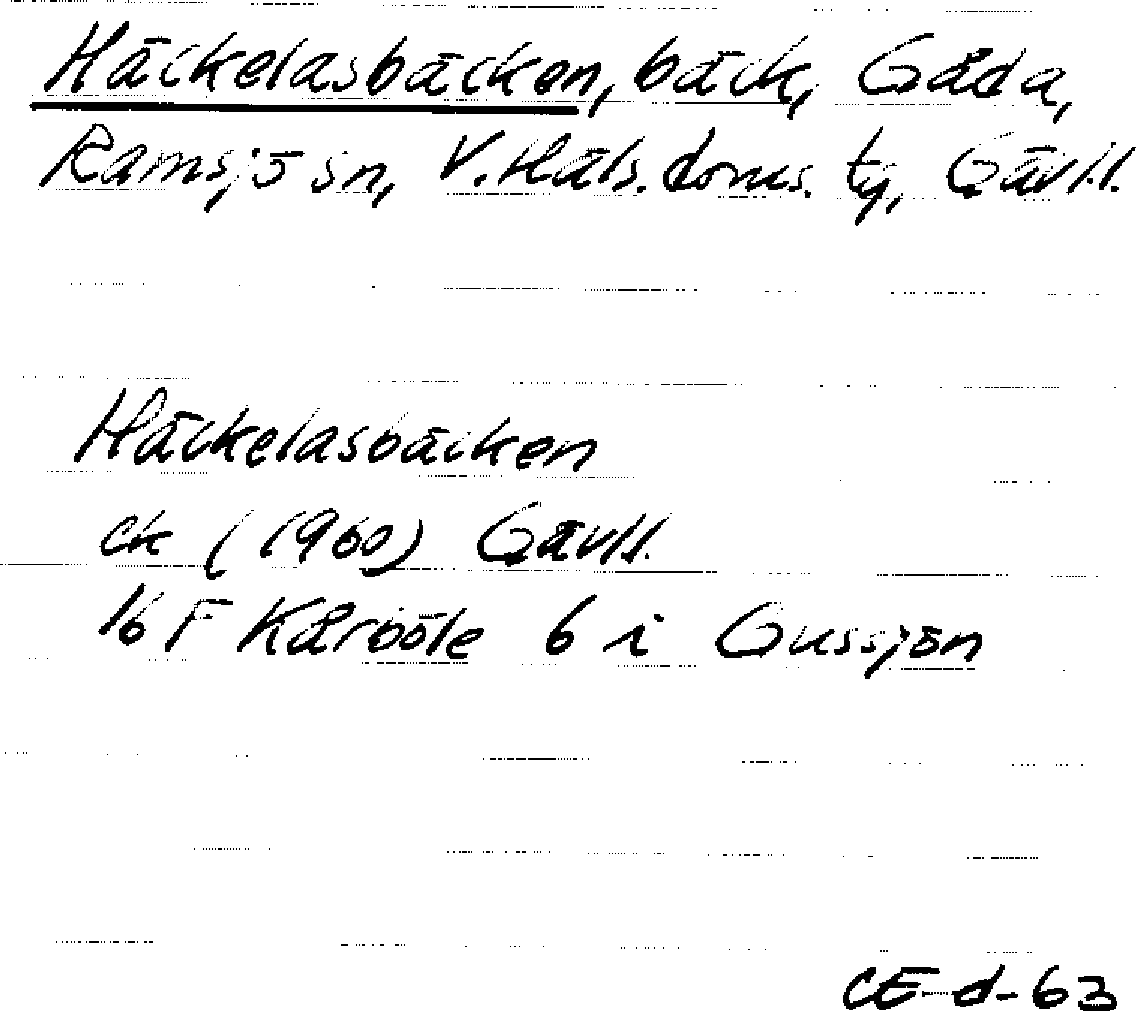 Häckelasbäcken, bäck, Gåda,
Ramsjö sn, V. Häls. doms. tg, Gävl.l.
Häckelasbäcken
ek (1960) Gävl.l.
16 F Kårböle 6 i Gussjön
CE-d-63